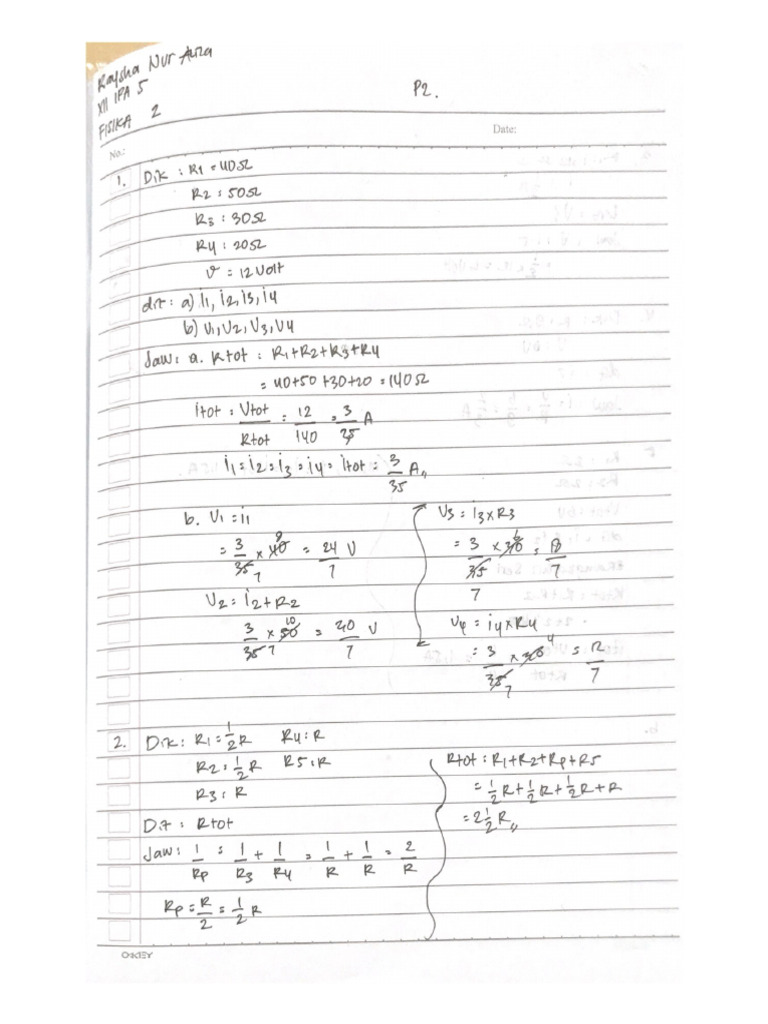 Raysha Nur Aura
XII IPA 5
FISIKA 2
P2.
Date:
No.:
1. Dik : R1 = 40Ω
R2 : 50Ω
R3 : 30Ω
R4 : 20Ω
V = 12 Volt
dit : a) i1, i2, i3, i4
b) V1, V2, V3, V4
Jaw : a. Rtot : R1+R2+R3+R4
= 40+50+30+20 = 140Ω
Itot : Vtot/Rtot = 12/140 = 3/35 A
i1 = i2 = i3 = i4 = itot = 3/35 A,,
b. V1 = i1
= 3/35 7 × 40 8 = 24/7 V
V2 = i2 + R2
3/35 7 × 50 10 = 20/7 V
V3 = i3 × R3
= 3/35 × 30 6 = 18/7
7
V4 = i4 × R4
= 3/35 7 × 20 4 = 12/7
2. Dik : R1 = 1/2 R R4 : R
R2 = 1/2 R R5 : R
R3 : R
Dit : Rtot
Jaw : 1/Rp = 1/R3 + 1/R4 = 1/R + 1/R = 2/R
Rp = R/2 = 1/2 R
Rtot : R1+R2+Rp+R5
= 1/2 R + 1/2 R + 1/2 R + R
= 2 1/2 R,,